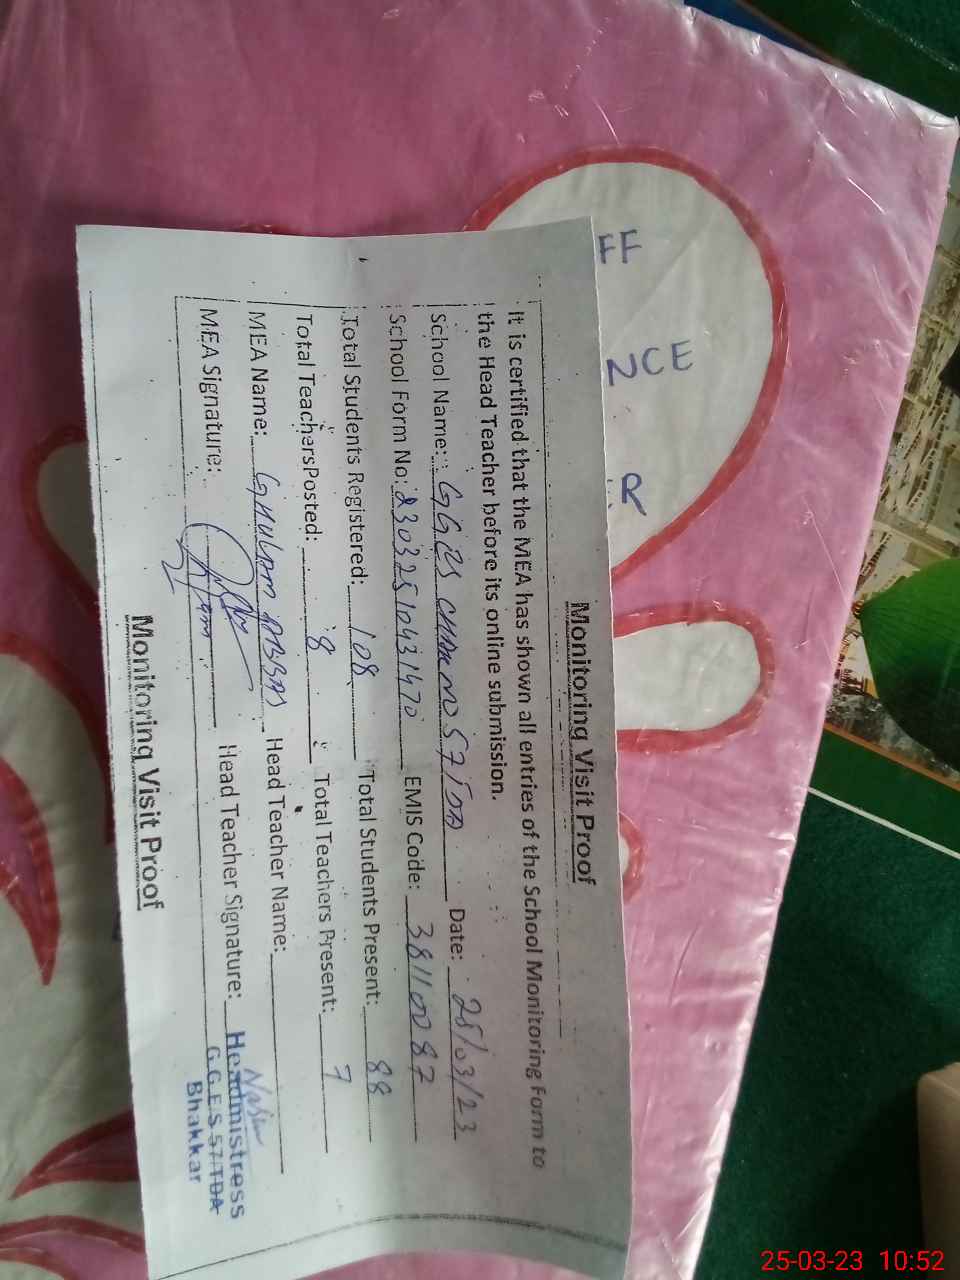 Monitoring Visit Proof
It is certified that the MEA has shown all entries of the School Monitoring Form to
the Head Teacher before its online submission.
School Name: GGES CHAK NO 57/TDA Date: 25/03/23
School Form No: 23032510431470 EMIS Code: 38110087
Total Students Registered: 108 Total Students Present: 88
Total Teachers Posted: 8 Total Teachers Present: 7
MEA Name: GHULAM ABBAS Head Teacher Name:
MEA Signature: Head Teacher Signature:
Headmistress
G.G.E.S 57/TDA
Bhakkar
Monitoring Visit Proof
FF
NCE
R
25-03-23 10:52